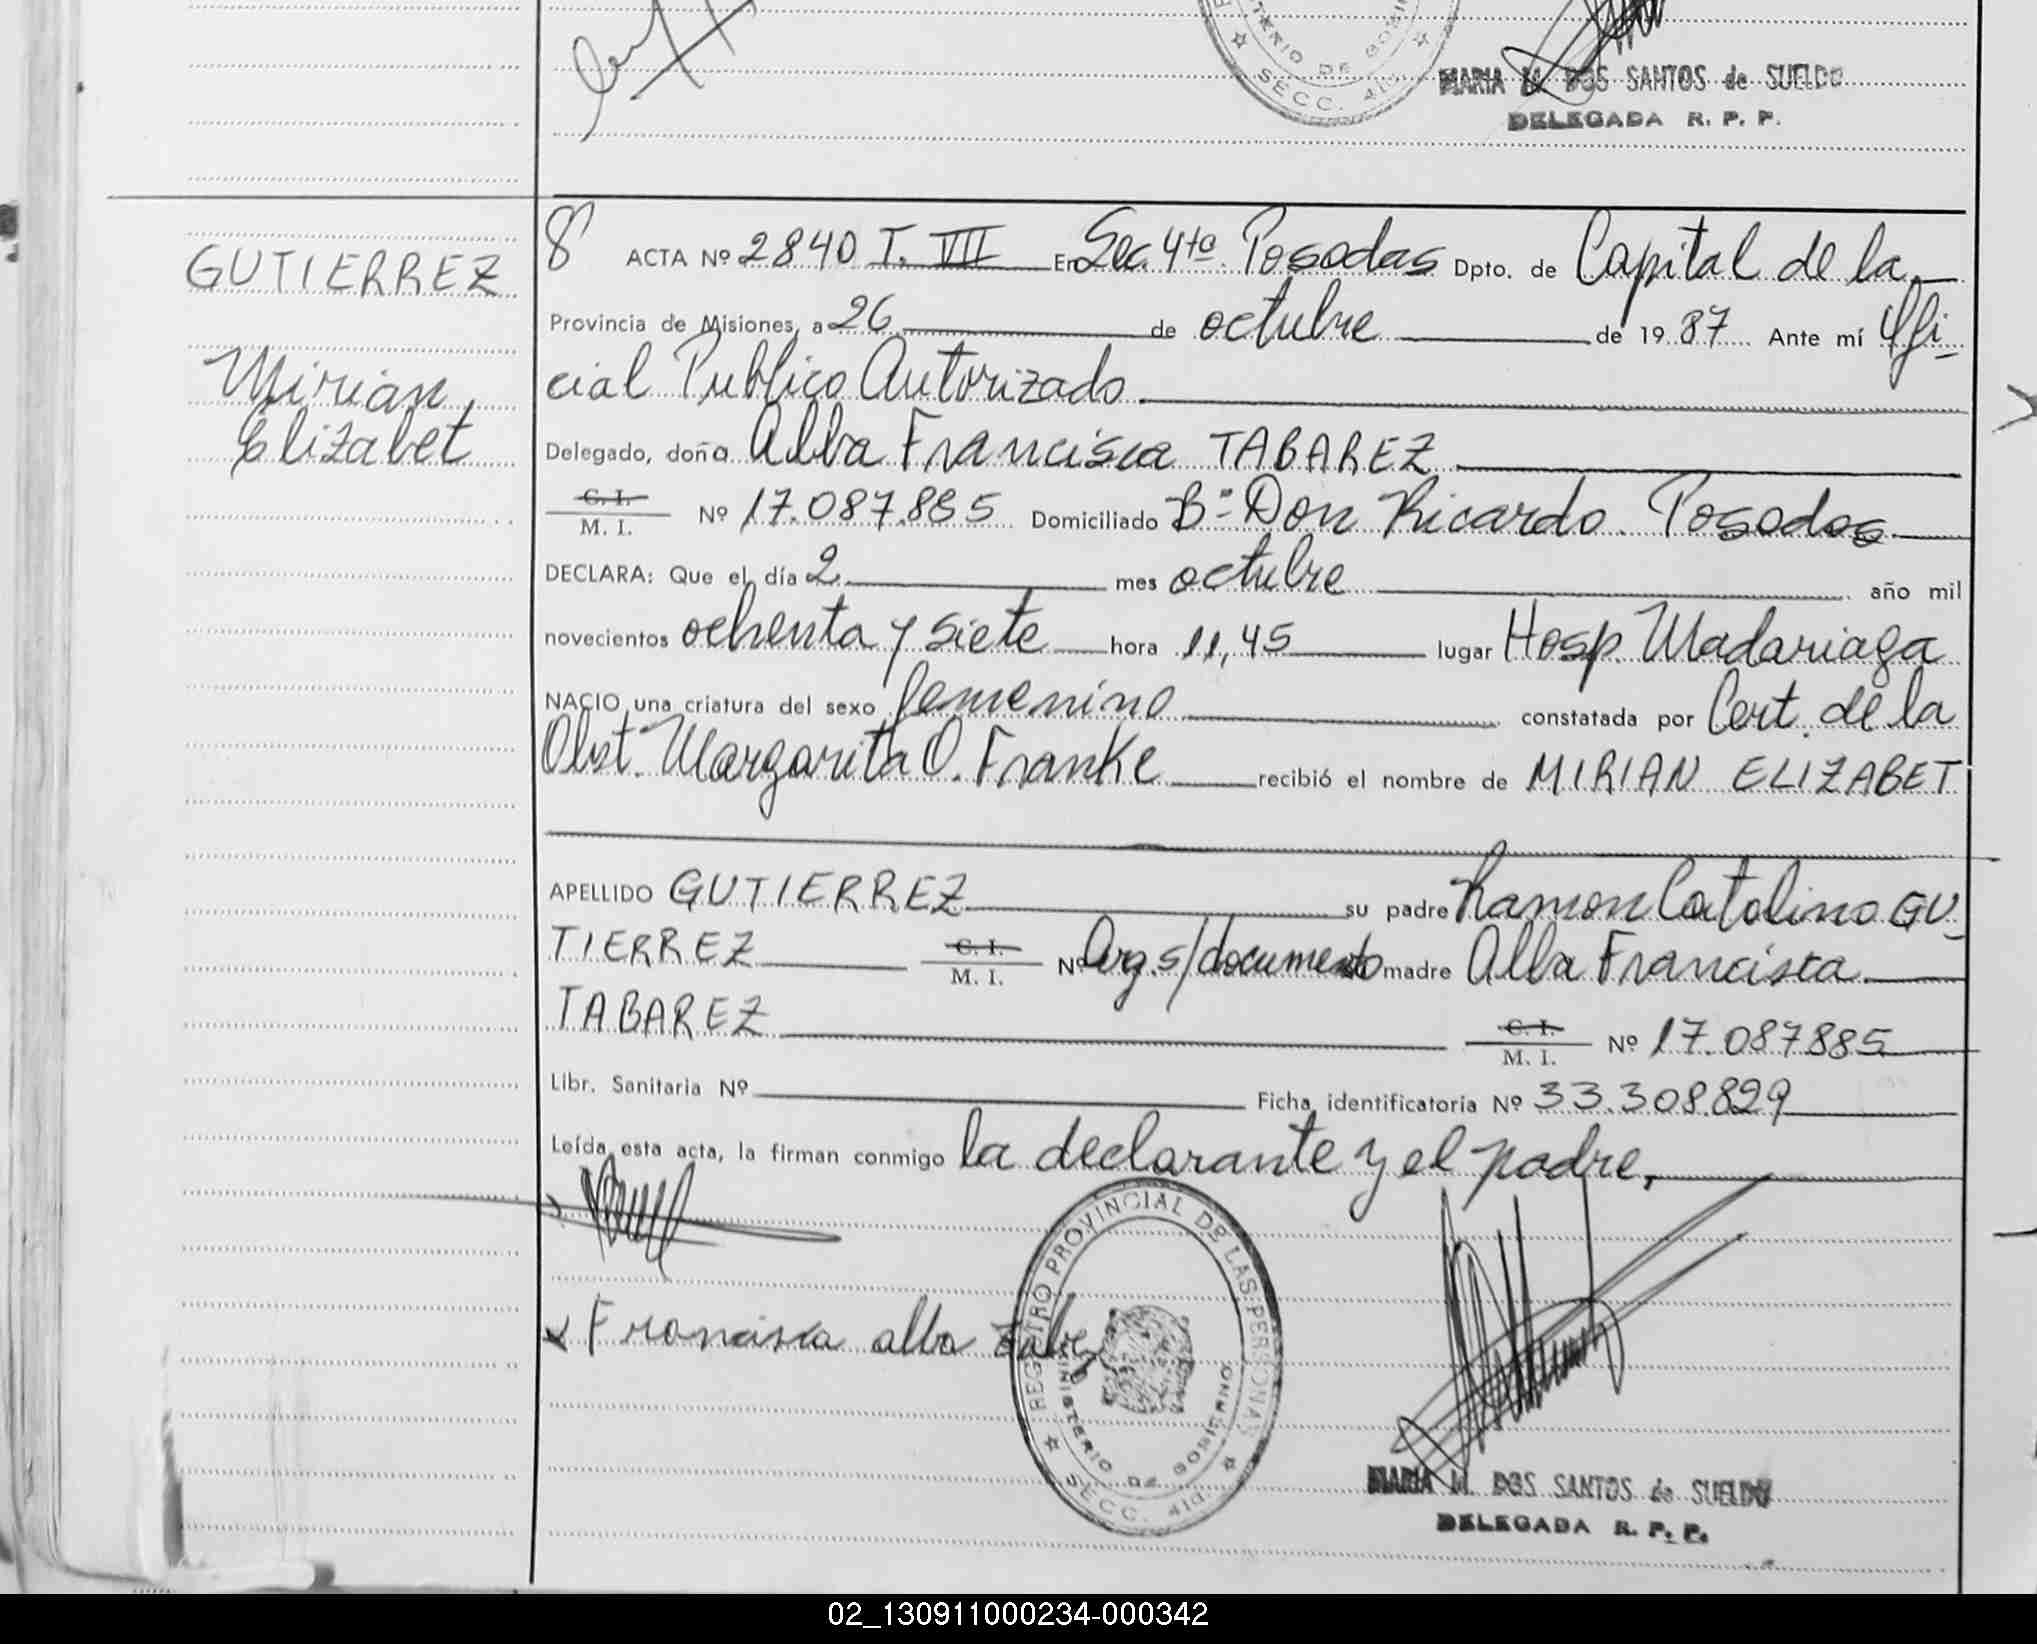 MINISTERIO DE GOBI
SECC. 4ta.
MARIA M. DOS SANTOS de SUELDO
DELEGADA R. P. P.
GUTIERREZ
Mirian
Elizabet
8 ACTA Nº 2840 T. VII En Sec. 4ta. Posadas Dpto. de Capital de la
Provincia de Misiones, a 26 de octubre de 1987 Ante mí Ofi-
cial Publico Autorizado
Delegado, doña Alba Francisca TABAREZ
C. I.
M. I. Nº 17.087.885 Domiciliado Bº Don Ricardo. Posadas
DECLARA: Que el día 2 mes octubre año mil
novecientos ochenta y siete hora 11,45 lugar Hosp. Madariaga
NACIO una criatura del sexo femenino constatada por Cert. de la
Obst. Margarita O. Franke recibió el nombre de MIRIAN ELIZABET
APELLIDO GUTIERREZ su padre Ramon Catalino GU-
TIERREZ C. I. M. I. Nº Arg. s/documento madre Alba Francisca
TABAREZ C. I. M. I. Nº 17.087885
Libr. Sanitaria Nº Ficha identificatoria Nº 33.308.829
Leída esta acta, la firman conmigo la declarante y el padre.
REGISTRO PROVINCIAL DE LAS PERSONAS
MINISTERIO DE GOBIERNO
SECC. 4ta.
Francisca alba
MARIA M. DOS SANTOS de SUELDO
DELEGADA R. P. P.
02_130911000234-000342